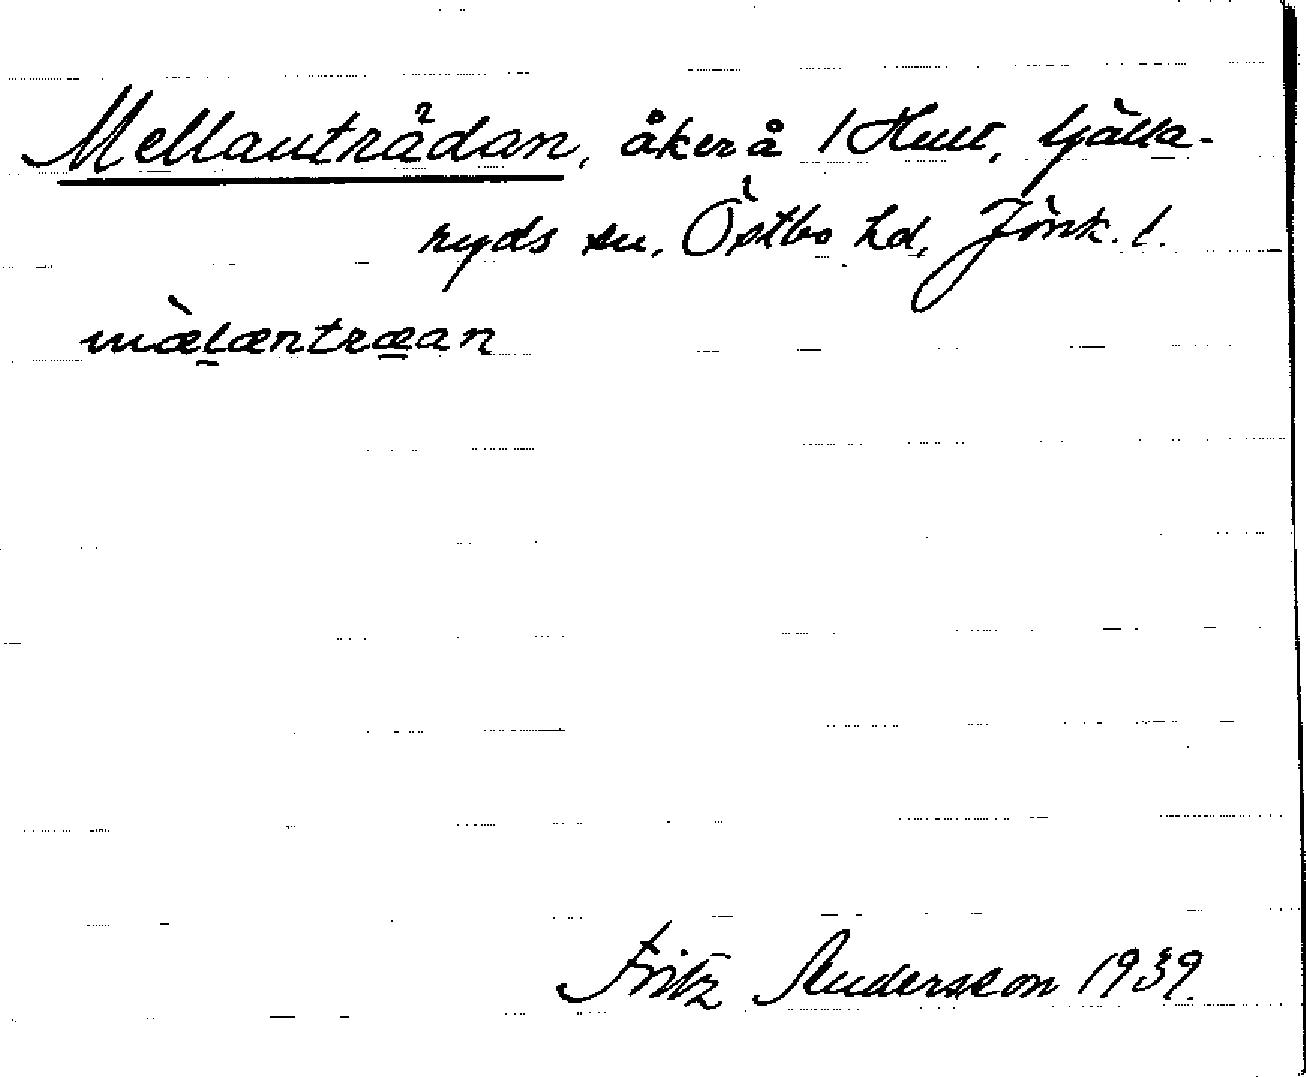 Mellanträdan, åker å 1 Hult, Gjälla-
ryds sn, Östbo hd, Jönk. l.
mælæntræan
Fritz Andersson 1939.